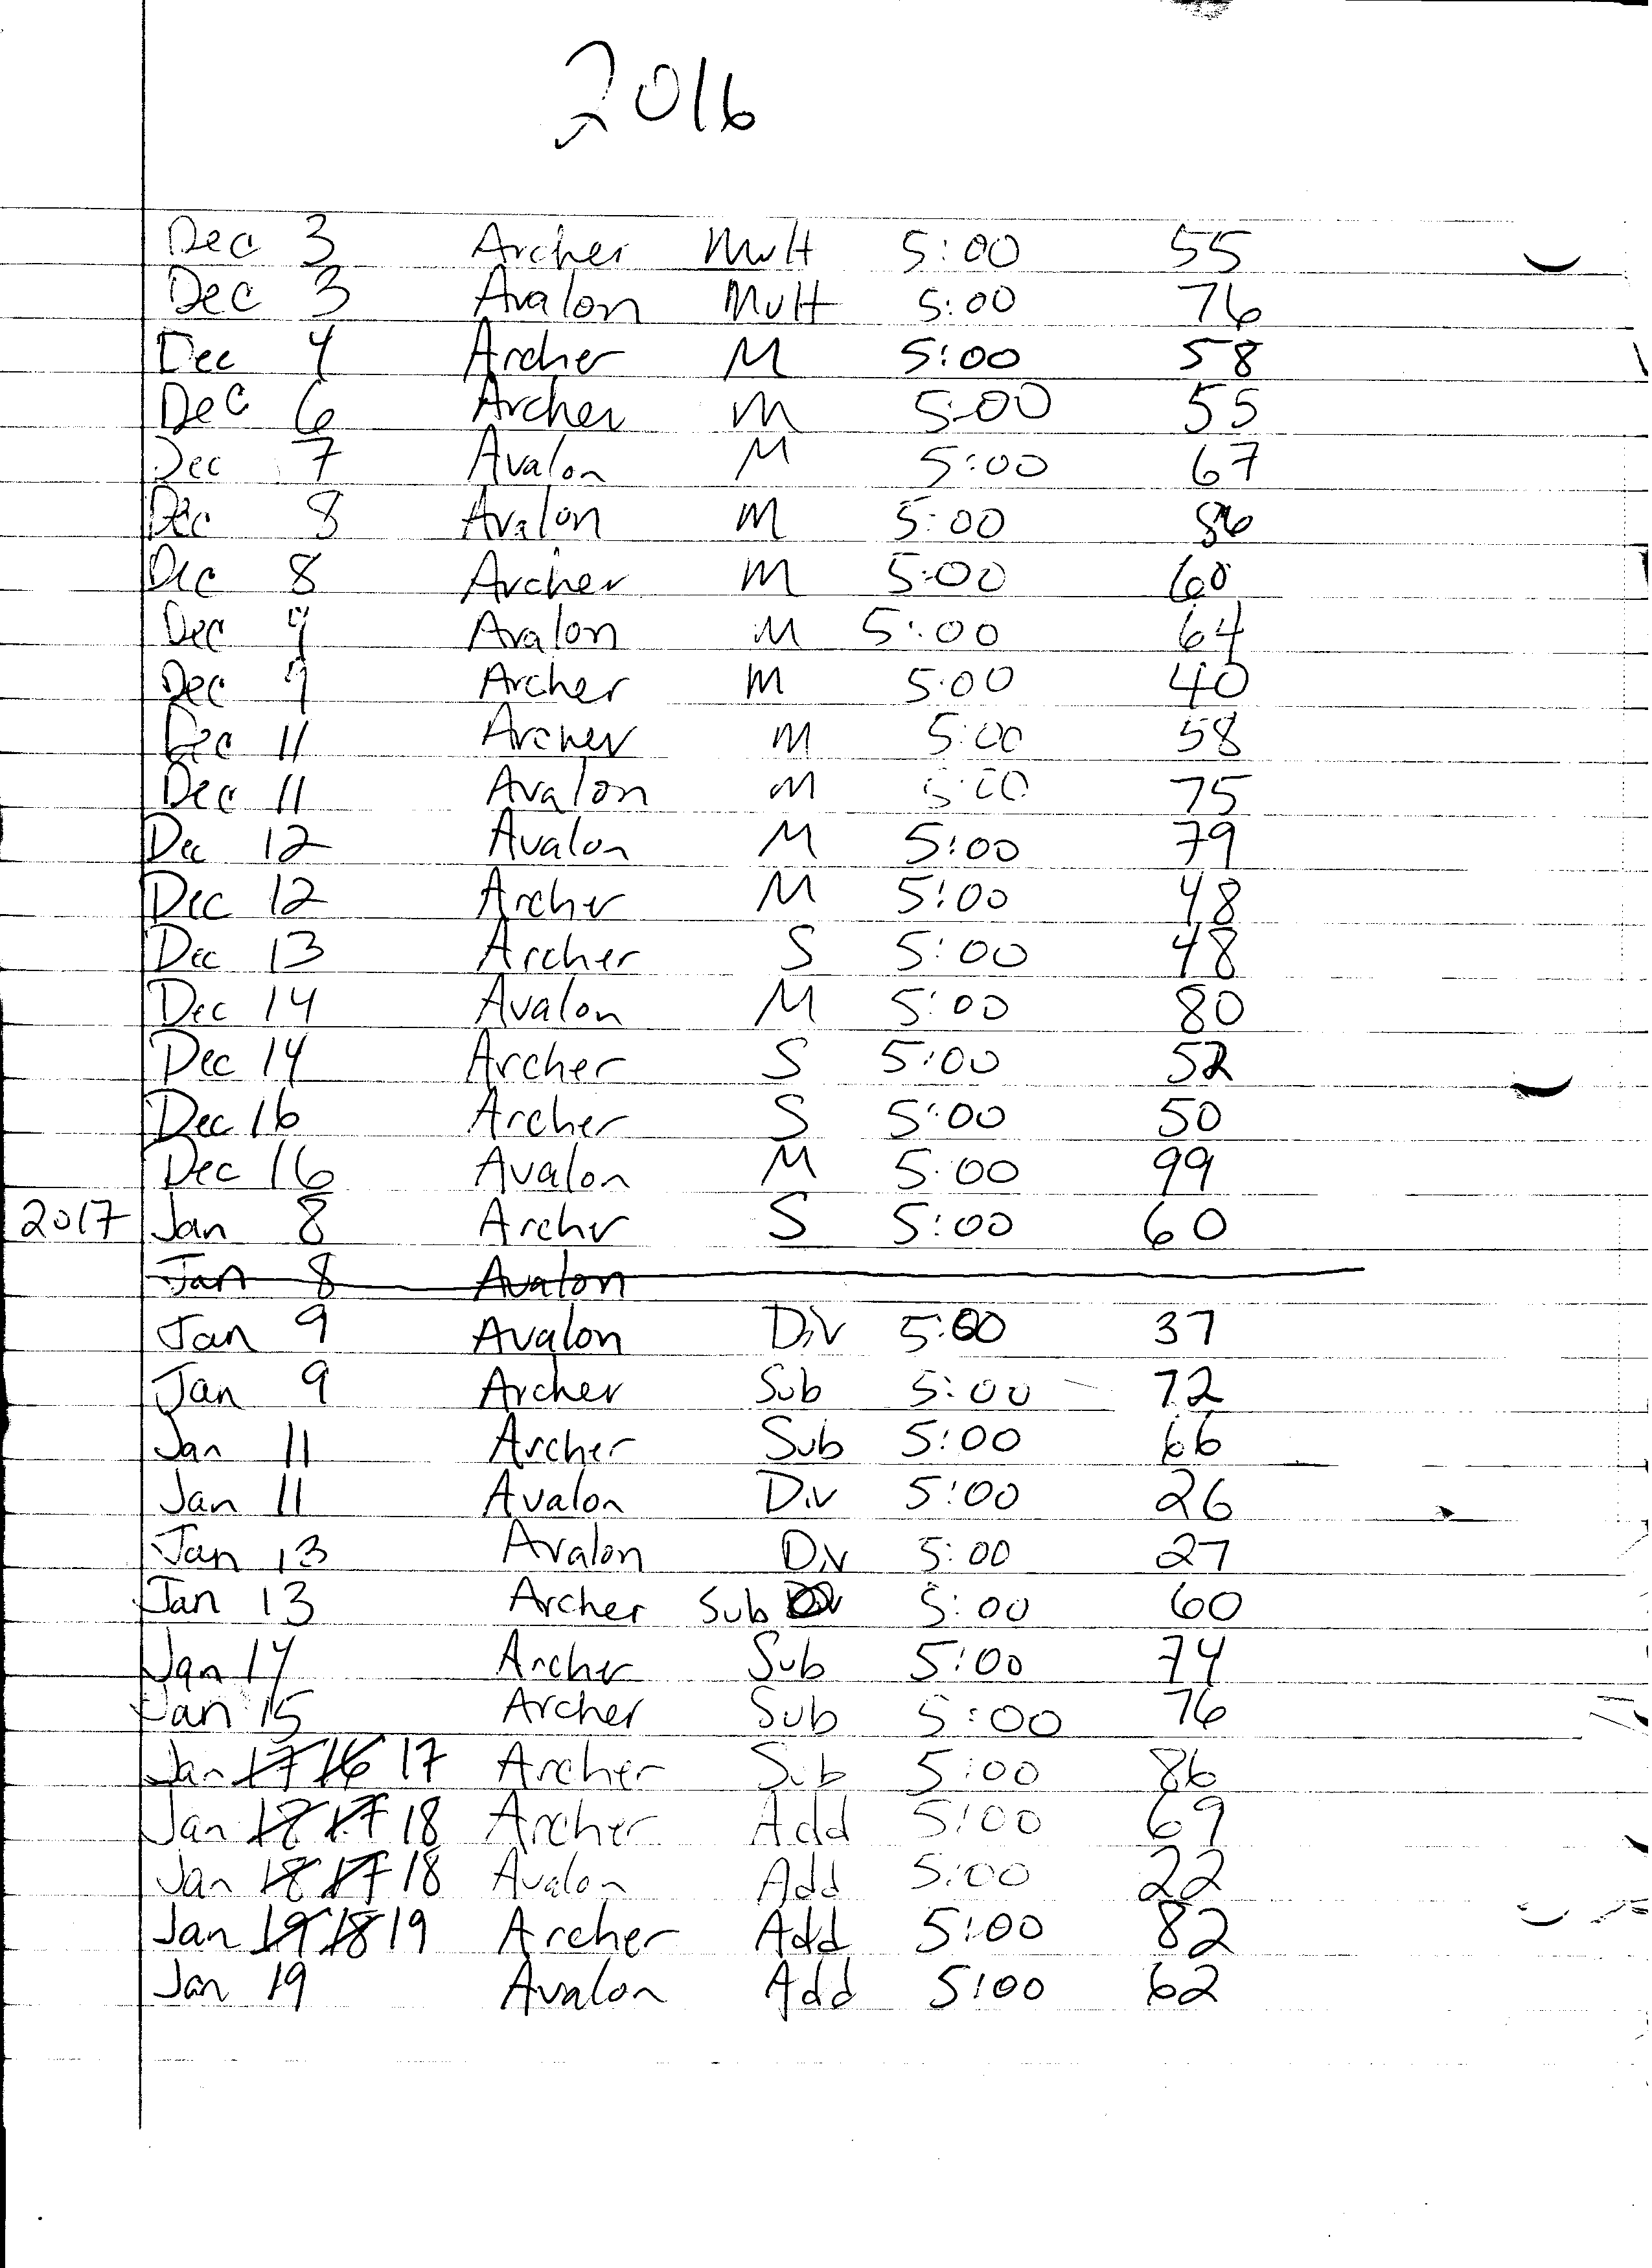 2016
Dec 3 Archer Mult 5:00 55
Dec 3 Avalon Mult 5:00 76
Dec 4 Archer M 5:00 58
Dec 6 Archer M 5:00 55
Dec 7 Avalon M 5:00 67
Dec 8 Avalon M 5:00 86
Dec 8 Archer M 5:00 60
Dec 9 Avalon M 5:00 64
Dec 9 Archer M 5:00 40
Dec 11 Archer M 5:00 58
Dec 11 Avalon M 5:00 75
Dec 12 Avalon M 5:00 79
Dec 12 Archer M 5:00 48
Dec 13 Archer S 5:00 48
Dec 14 Avalon M 5:00 80
Dec 14 Archer S 5:00 52
Dec 16 Archer S 5:00 50
Dec 16 Avalon M 5:00 99
2017 Jan 8 Archer S 5:00 60
Jan 8 Avalon
Jan 9 Avalon Div 5:00 37
Jan 9 Archer Sub 5:00 72
Jan 11 Archer Sub 5:00 66
Jan 11 Avalon Div 5:00 26
Jan 13 Avalon Div 5:00 27
Jan 13 Archer Sub Div 5:00 60
Jan 14 Archer Sub 5:00 74
Jan 15 Archer Sub 5:00 76
Jan 17 16 17 Archer Sub 5:00 86
Jan 18 17 18 Archer Add 5:00 69
Jan 18 17 18 Avalon Add 5:00 22
Jan 19 18 19 Archer Add 5:00 82
Jan 19 Avalon Add 5:00 62